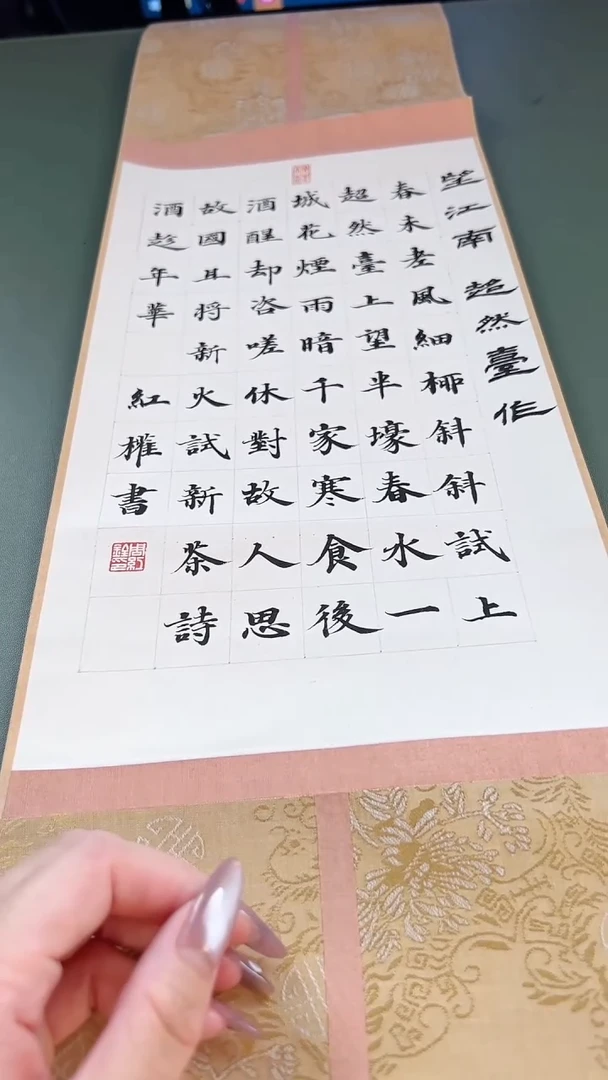 望江南 超然臺作
春未老風細柳斜斜試上
超然臺上望半壕春水一
城花煙雨暗千家寒食後
酒醒却咨嗟休對故人思
故國且將新火試新茶詩
酒趁年華 紅 書